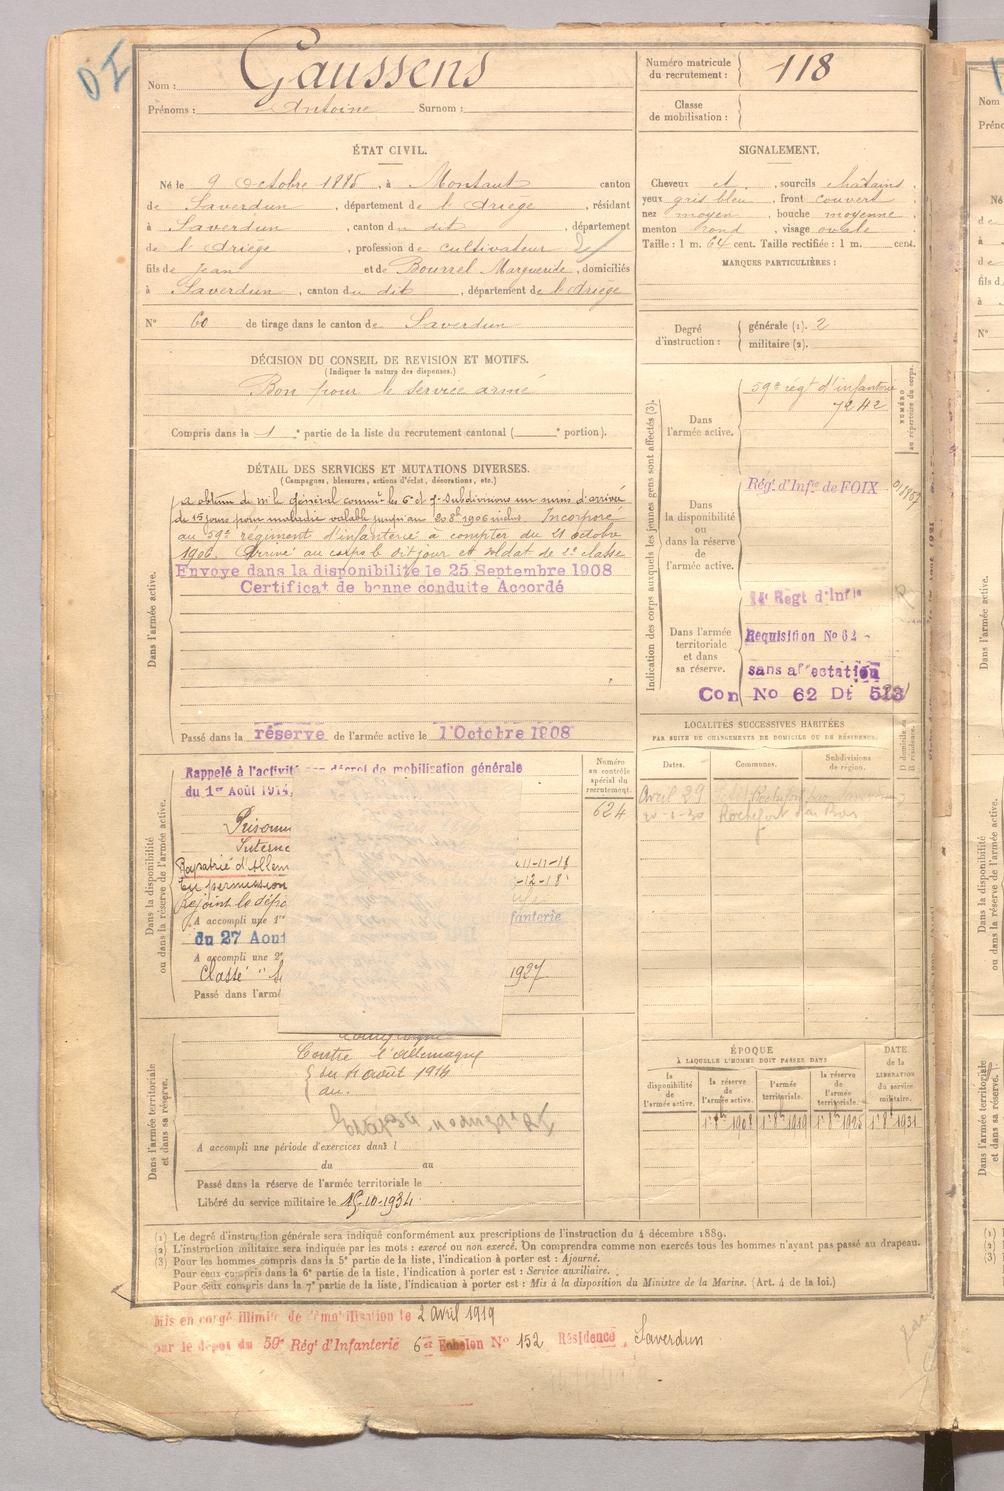 Nom : Gaussens
Prénoms : Antoine Surnom :
Numéro matricule
du recrutement : 118
Classe
de mobilisation :
ÉTAT CIVIL.
Né le 9 Octobre 1885, à Montaut canton
de Saverdun, département de l'Ariège, résidant
à Saverdun, canton du dit, département
de l'Ariège, profession de cultivateur
fils de Jean et de Bourrel Marguerite, domiciliés
à Saverdun, canton du dit, département de l'Ariège
N° 60 de tirage dans le canton de Saverdun
SIGNALEMENT.
Cheveux et, sourcils châtains,
yeux gris bleu, front couvert
nez moyen, bouche moyenne
menton rond, visage ovale
Taille : 1 m. 64 cent. Taille rectifiée : 1 m. cent.
MARQUES PARTICULIÈRES :
Degré
d'instruction :
générale (1). 2
militaire (2).
DÉCISION DU CONSEIL DE REVISION ET MOTIFS.
(Indiquer la nature des dispenses.)
Bon pour le service armé
Compris dans la 1 e partie de la liste du recrutement cantonal ( e portion).
DÉTAIL DES SERVICES ET MUTATIONS DIVERSES.
(Campagnes, blessures, actions d'éclat, décorations, etc.)
Dans l'armée active.
a obtenu de M. le Général comm. les 6e et 7e Subdivisions un sursis d'arrivée
de 15 jours pour maladie valable jusqu'au 20 8bre 1906 inclus Incorporé
au 59e régiment d'infanterie à compter du 21 octobre
1906. Arrivé au corps le dit jour et soldat de 2e classe
Envoyé dans la disponibilité le 25 Septembre 1908
Certificat de bonne conduite Accordé
Passé dans la réserve de l'armée active le 1 Octobre 1908
Indication des corps auxquels les jeunes gens sont affectés (3).
NUMÉRO
au répertoire du corps.
Dans
l'armée active.
59e régt d'infanterie
7242
Dans
la disponibilité
ou
dans la réserve
de
l'armée active.
Régt d'Infie de FOIX
Dans l'armée
territoriale
et dans
sa réserve.
14e Regt d'Infie
Requisition No 62
sans affectation
Con No 62 Dt 513
LOCALITÉS SUCCESSIVES HABITÉES
PAR SUITE DE CHANGEMENTS DE DOMICILE OU DE RÉSIDENCE.
Dates. Communes. Subdivisions
de région.
D domicile ou
R résidence.
Avril 29
Dans la disponibilité
ou dans la réserve de l'armée active.
Numéro
au contrôle
spécial du
recrutement.
624
Rappelé à l'activité par décret de mobilisation générale
du 1er Août 1914,
Prisonn
Interné
Rapatrié d'Allem 11-11-18
En permission -12-18
Rejoint le dépo
A accompli une 1re fanterie
du 27 Aout
A accompli une 2e
Classé 1927
Passé dans l'armé
Dans l'armée territoriale
et dans sa réserve.
Campagne
Contre l'Allemagne
du 4 août 1914
au.
A accompli une période d'exercices dans l
du au
Passé dans la réserve de l'armée territoriale le
Libéré du service militaire le 15-10-1934
ÉPOQUE
À LAQUELLE L'HOMME DOIT PASSER DANS
DATE
de la
LIBÉRATION
du service
militaire.
la
disponibilité
de
l'armée active.
la réserve
de
l'armée active.
l'armée
territoriale.
la réserve
de
l'armée
territoriale.
1er 8bre 1908 1er 8bre 1919 1er 8bre 1925 1er 8bre 1931
(1) Le degré d'instruction générale sera indiqué conformément aux prescriptions de l'instruction du 4 décembre 1889.
(2) L'instruction militaire sera indiquée par les mots : exercé ou non exercé. On comprendra comme non exercés tous les hommes n'ayant pas passé au drapeau.
(3) Pour les hommes compris dans la 5e partie de la liste, l'indication à porter est : Ajourné.
Pour ceux compris dans la 6e partie de la liste, l'indication à porter est : Service auxiliaire.
Pour ceux compris dans la 7e partie de la liste, l'indication à porter est : Mis à la disposition du Ministre de la Marine. (Art. 4 de la loi.)
Mis en congé illimité de démobilisation le 2 Avril 1919
par le dépôt du 59e Régt d'Infanterie 6e Echelon N° 152 Résidence, Saverdun